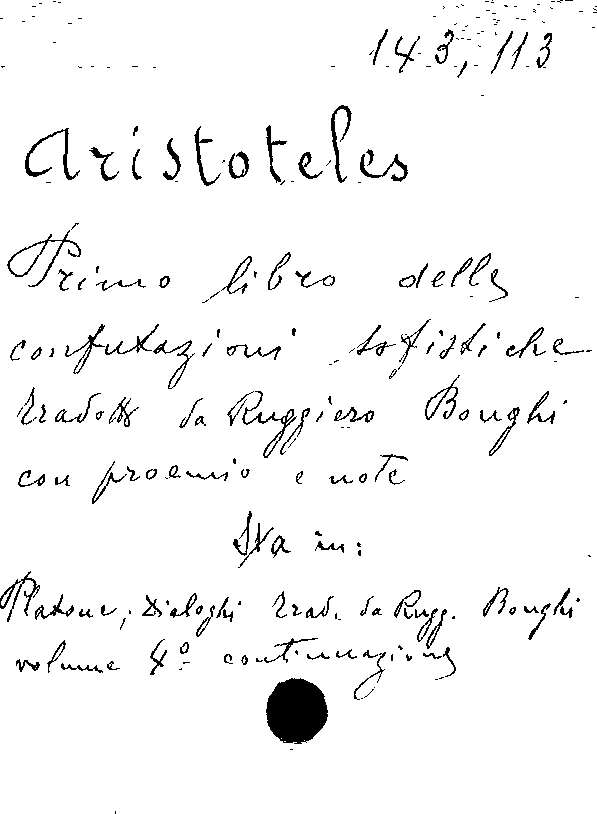 143, 113
Aristoteles
Primo libro delle
confutazioni sofistiche
tradotto da Ruggiero Bonghi
con proemio e note
Sta in:
Platone; Dialoghi trad. da Rugg. Bonghi
volume 4º continuazione